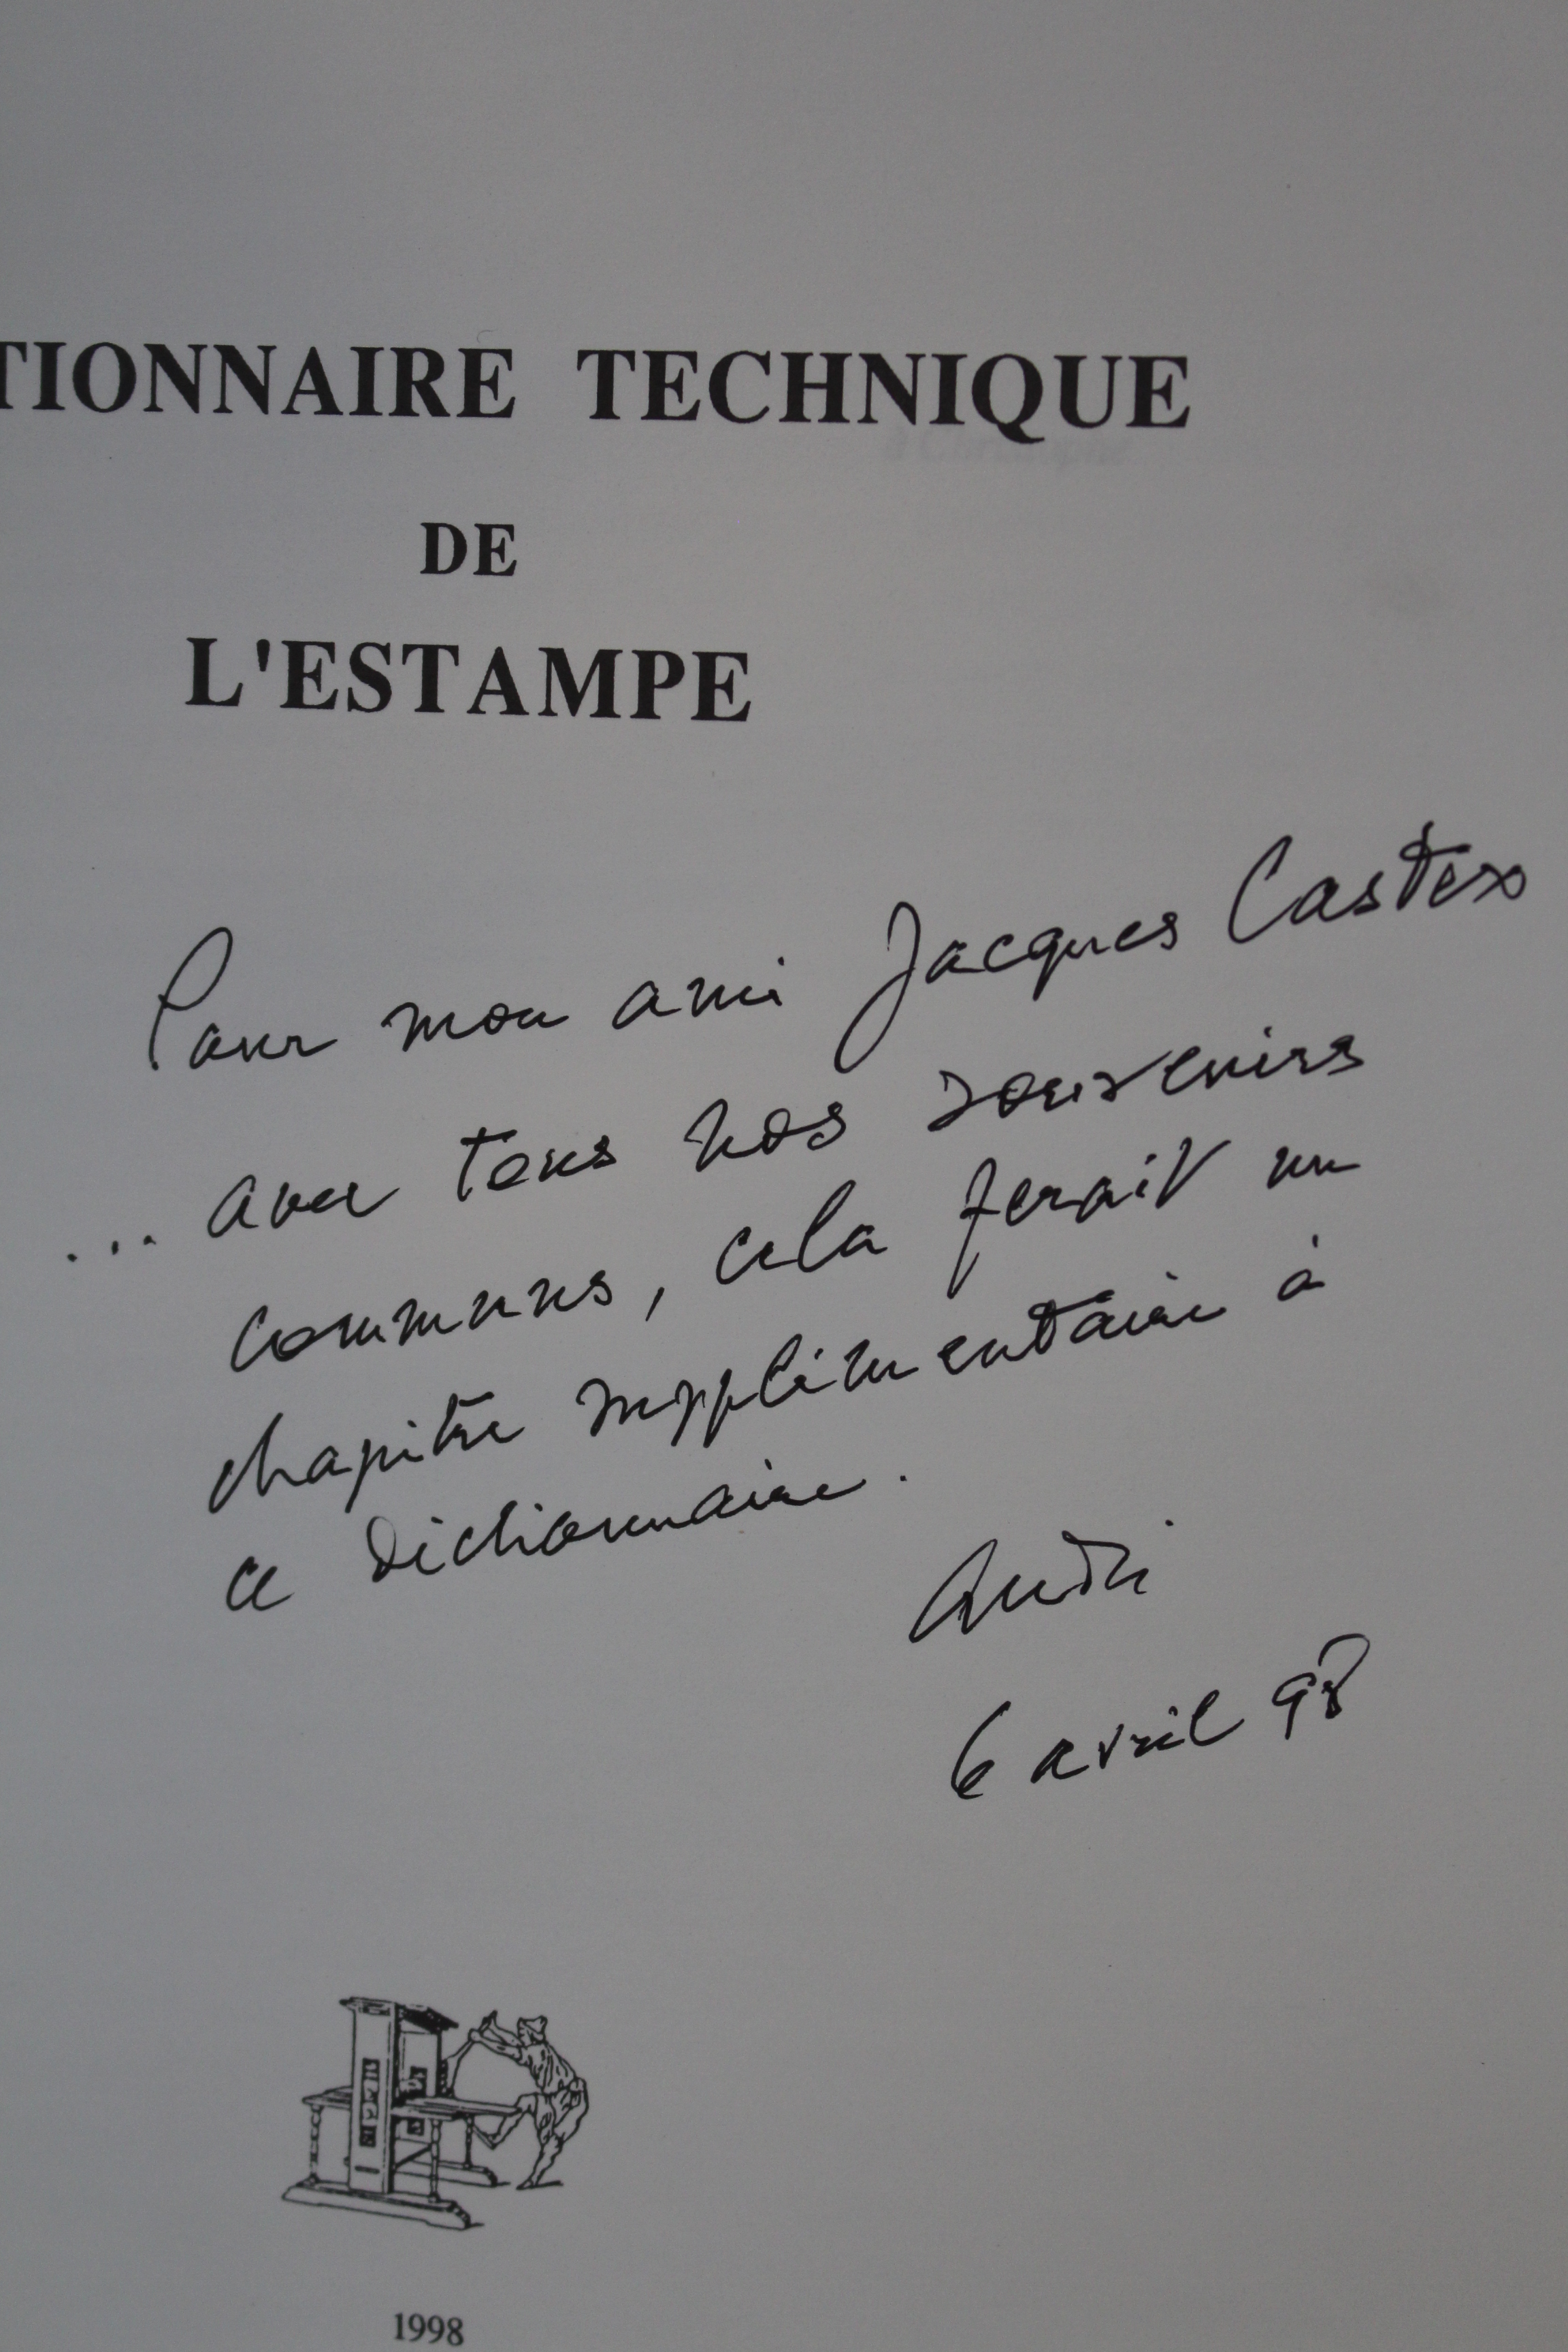 TIONNAIRE TECHNIQUE
DE
L'ESTAMPE
Pour mon ami Jacques Castex
... avec tous nos souvenirs
communs, cela ferait un
chapitre supplémentaire à
ce dictionnaire.
André
6 avril 98
1998